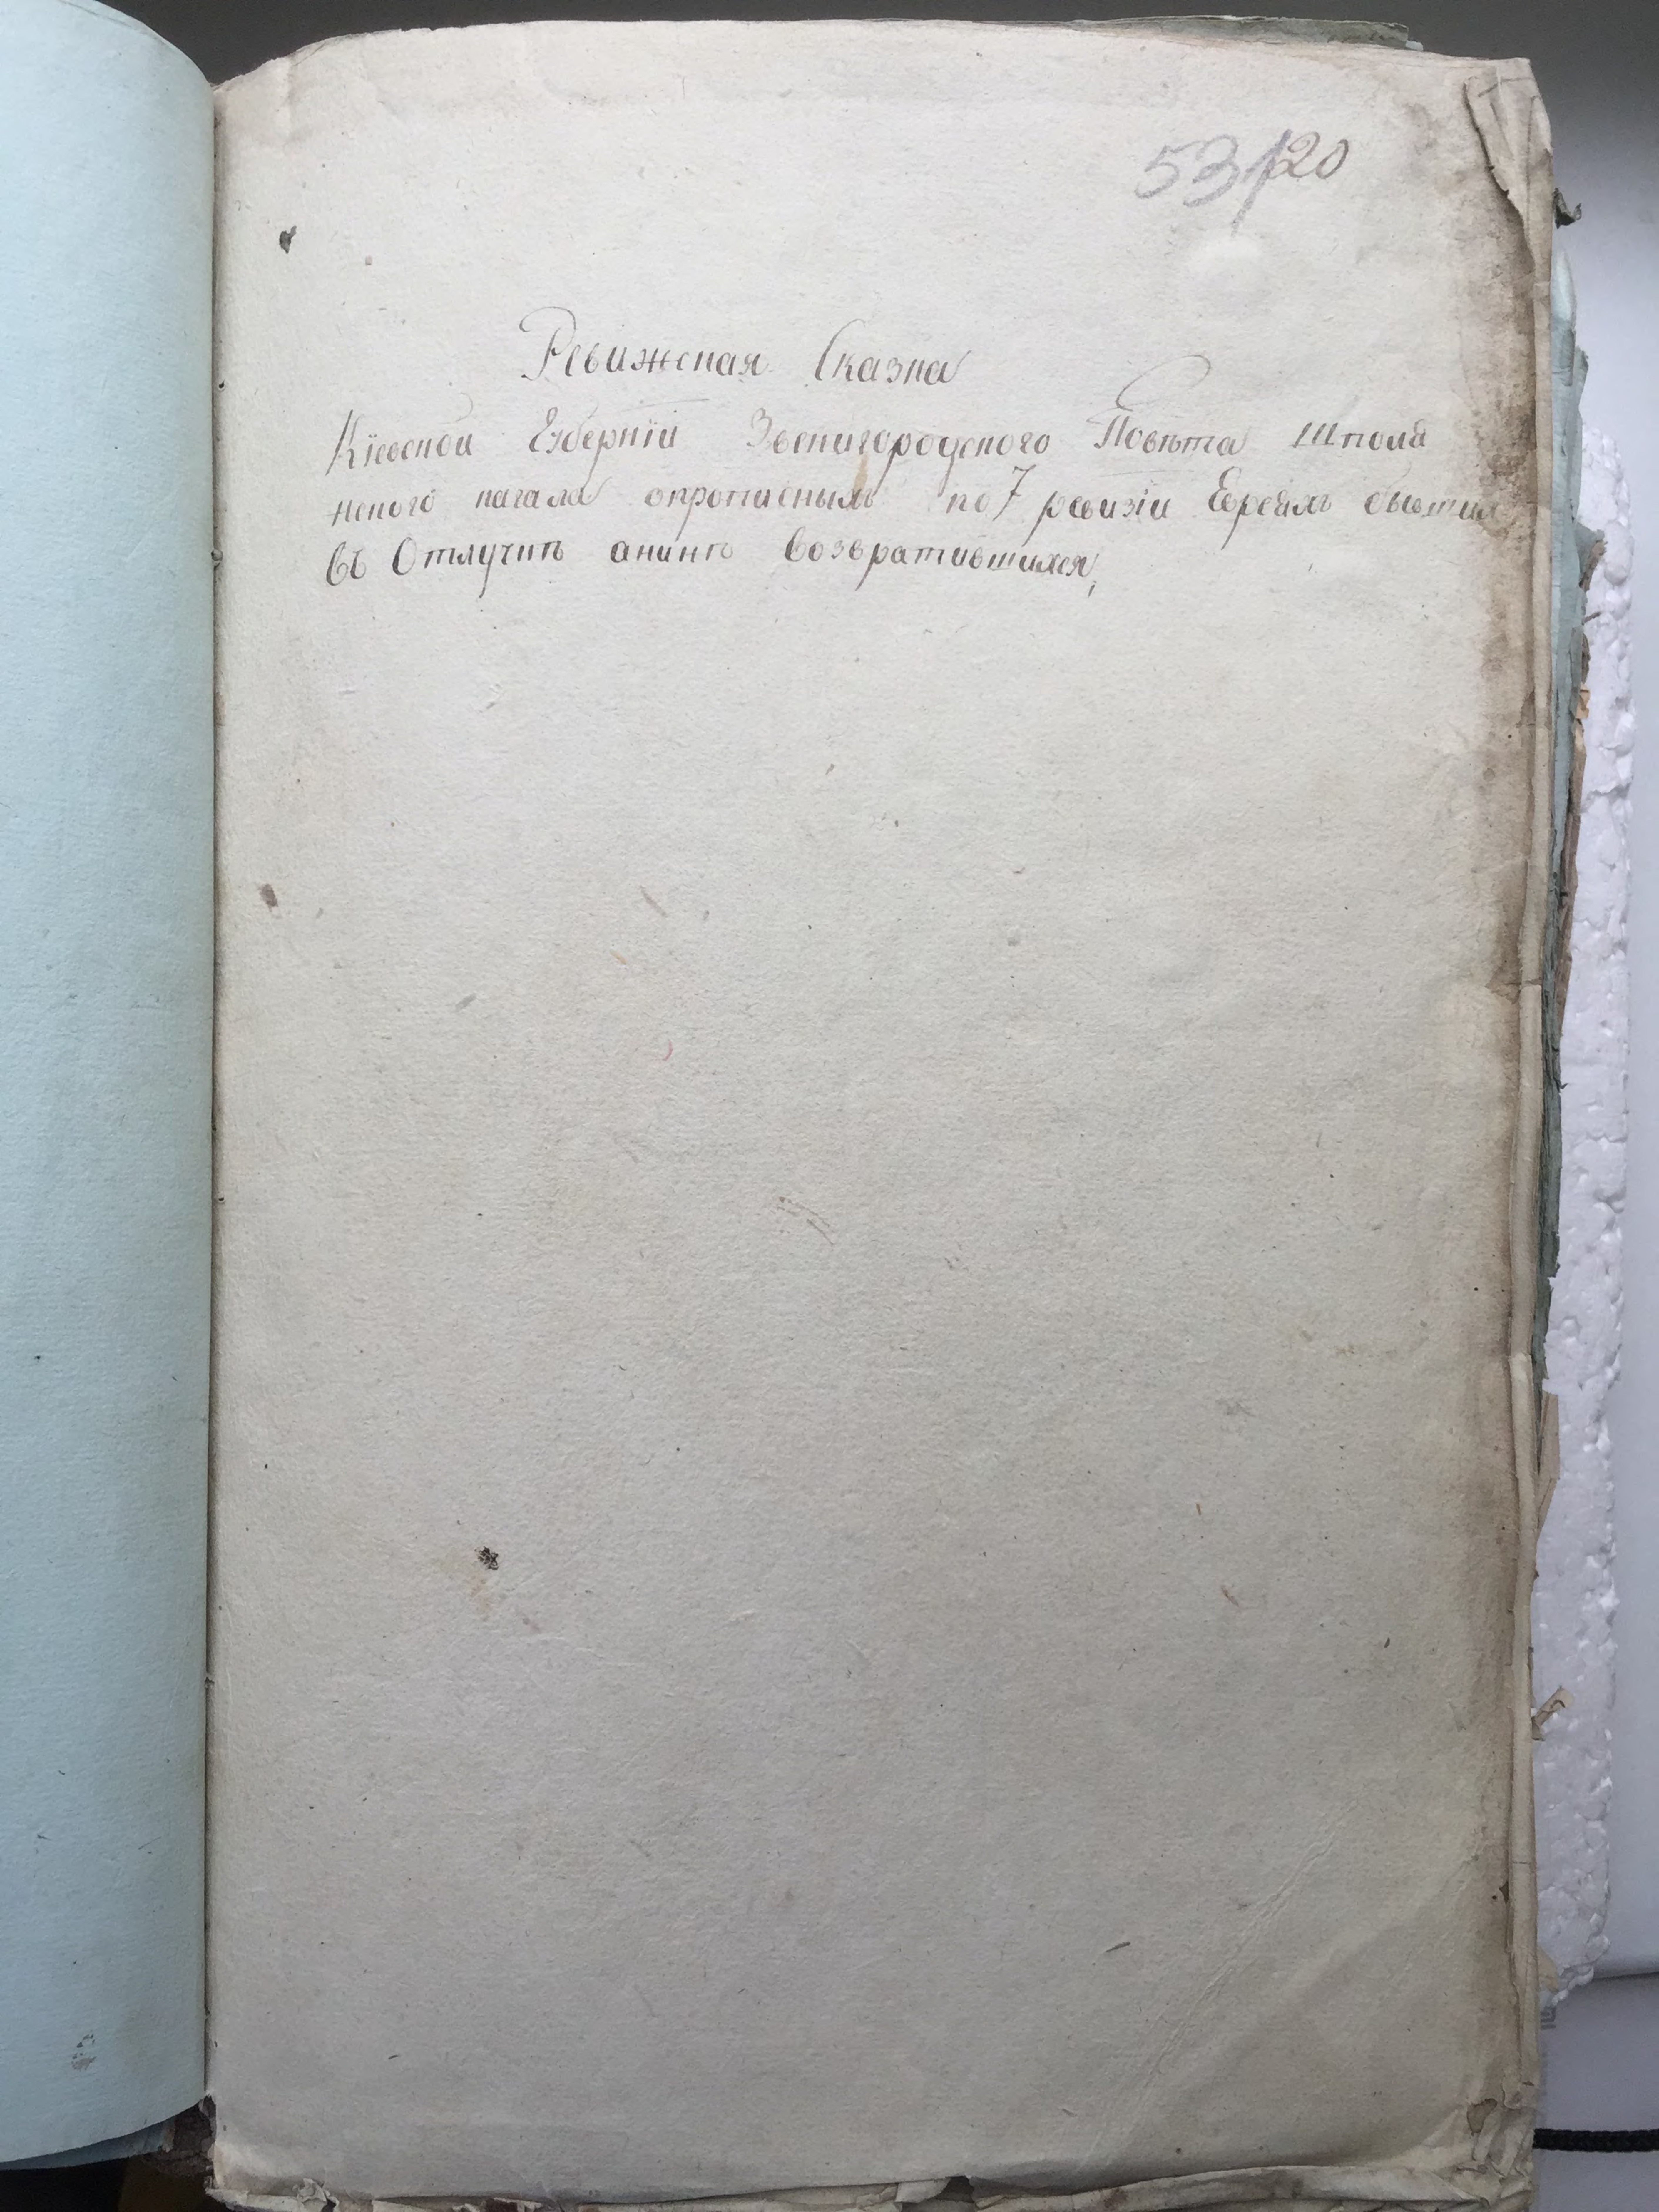 53/120
Ревижская Сказка
Кіевской Губерніи Звенигородского Повѣта Шполя
нского кагала опрописнымъ по 7 ревизіи Евреямъ бывших
въ Отлучкѣ анинѣ возвратившихся,